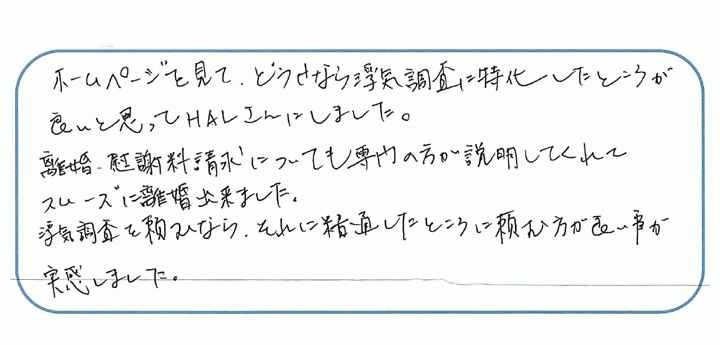 ホームページを見て、どうせなら浮気調査に特化したところが
良いと思ってHALさんにしました。
離婚、慰謝料請求についても専門の方が説明してくれて
スムーズに離婚出来ました。
浮気調査を頼むなら、それに精通したところに頼む方が良い事が
実感しました。